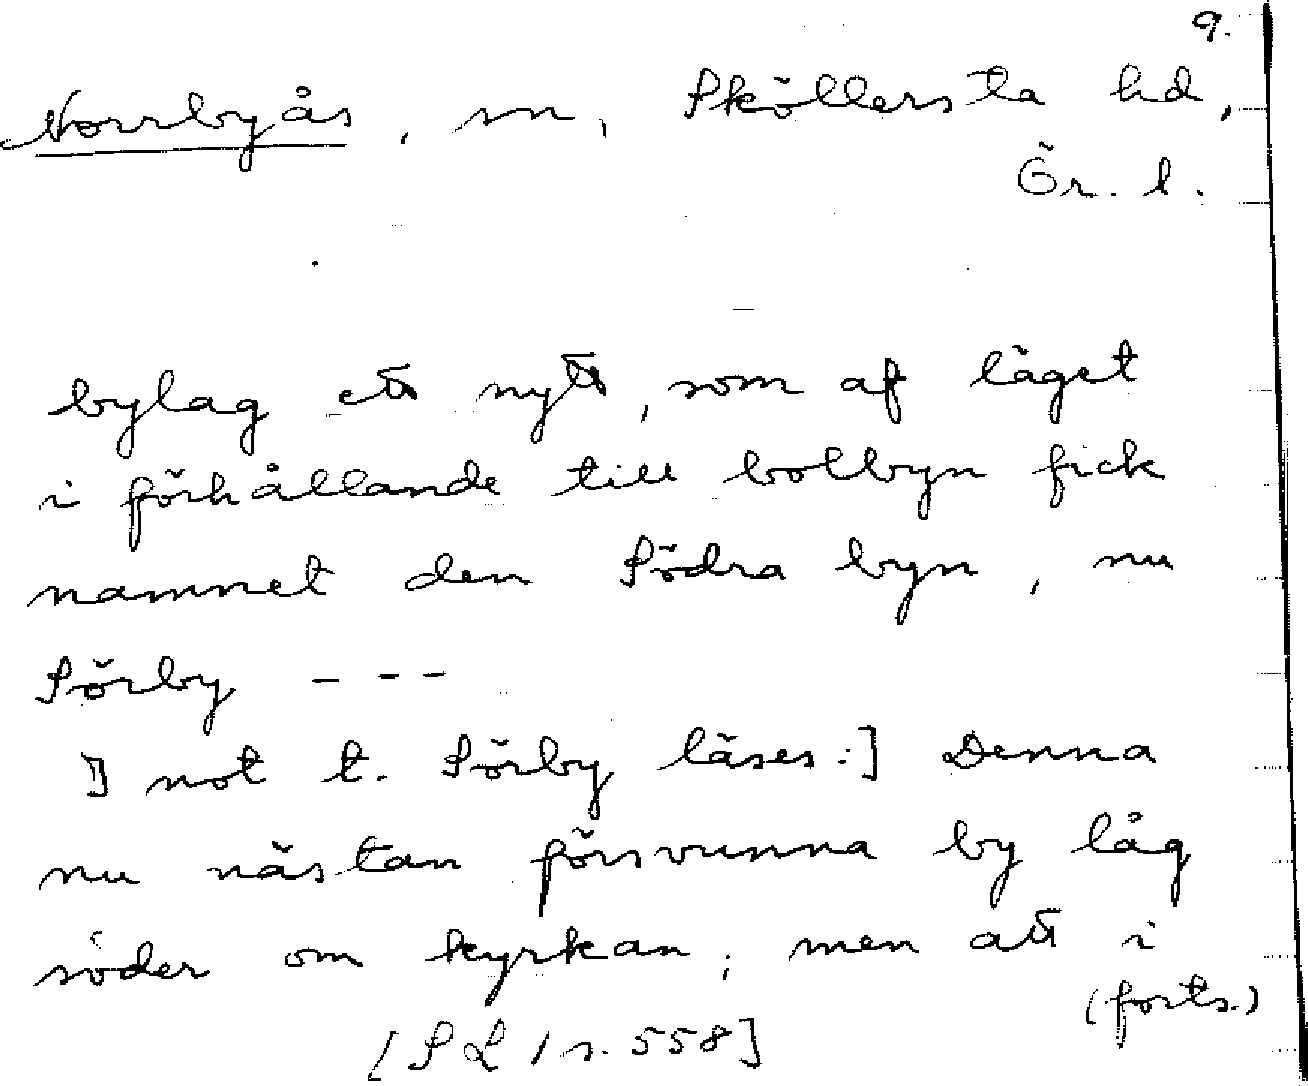 9.
Norrbyås, sn, Sköllersta hd,
Ör. l.
bylag ett nytt, som af läget
i förhållande till bolbyn fick
namnet den Södra byn, nu
Sörby - - -
] not t. Sörby läses:] Denna
nu nästan försvunna by låg
söder om kyrkan, men att i
(forts.)
[SL 1 s. 558]